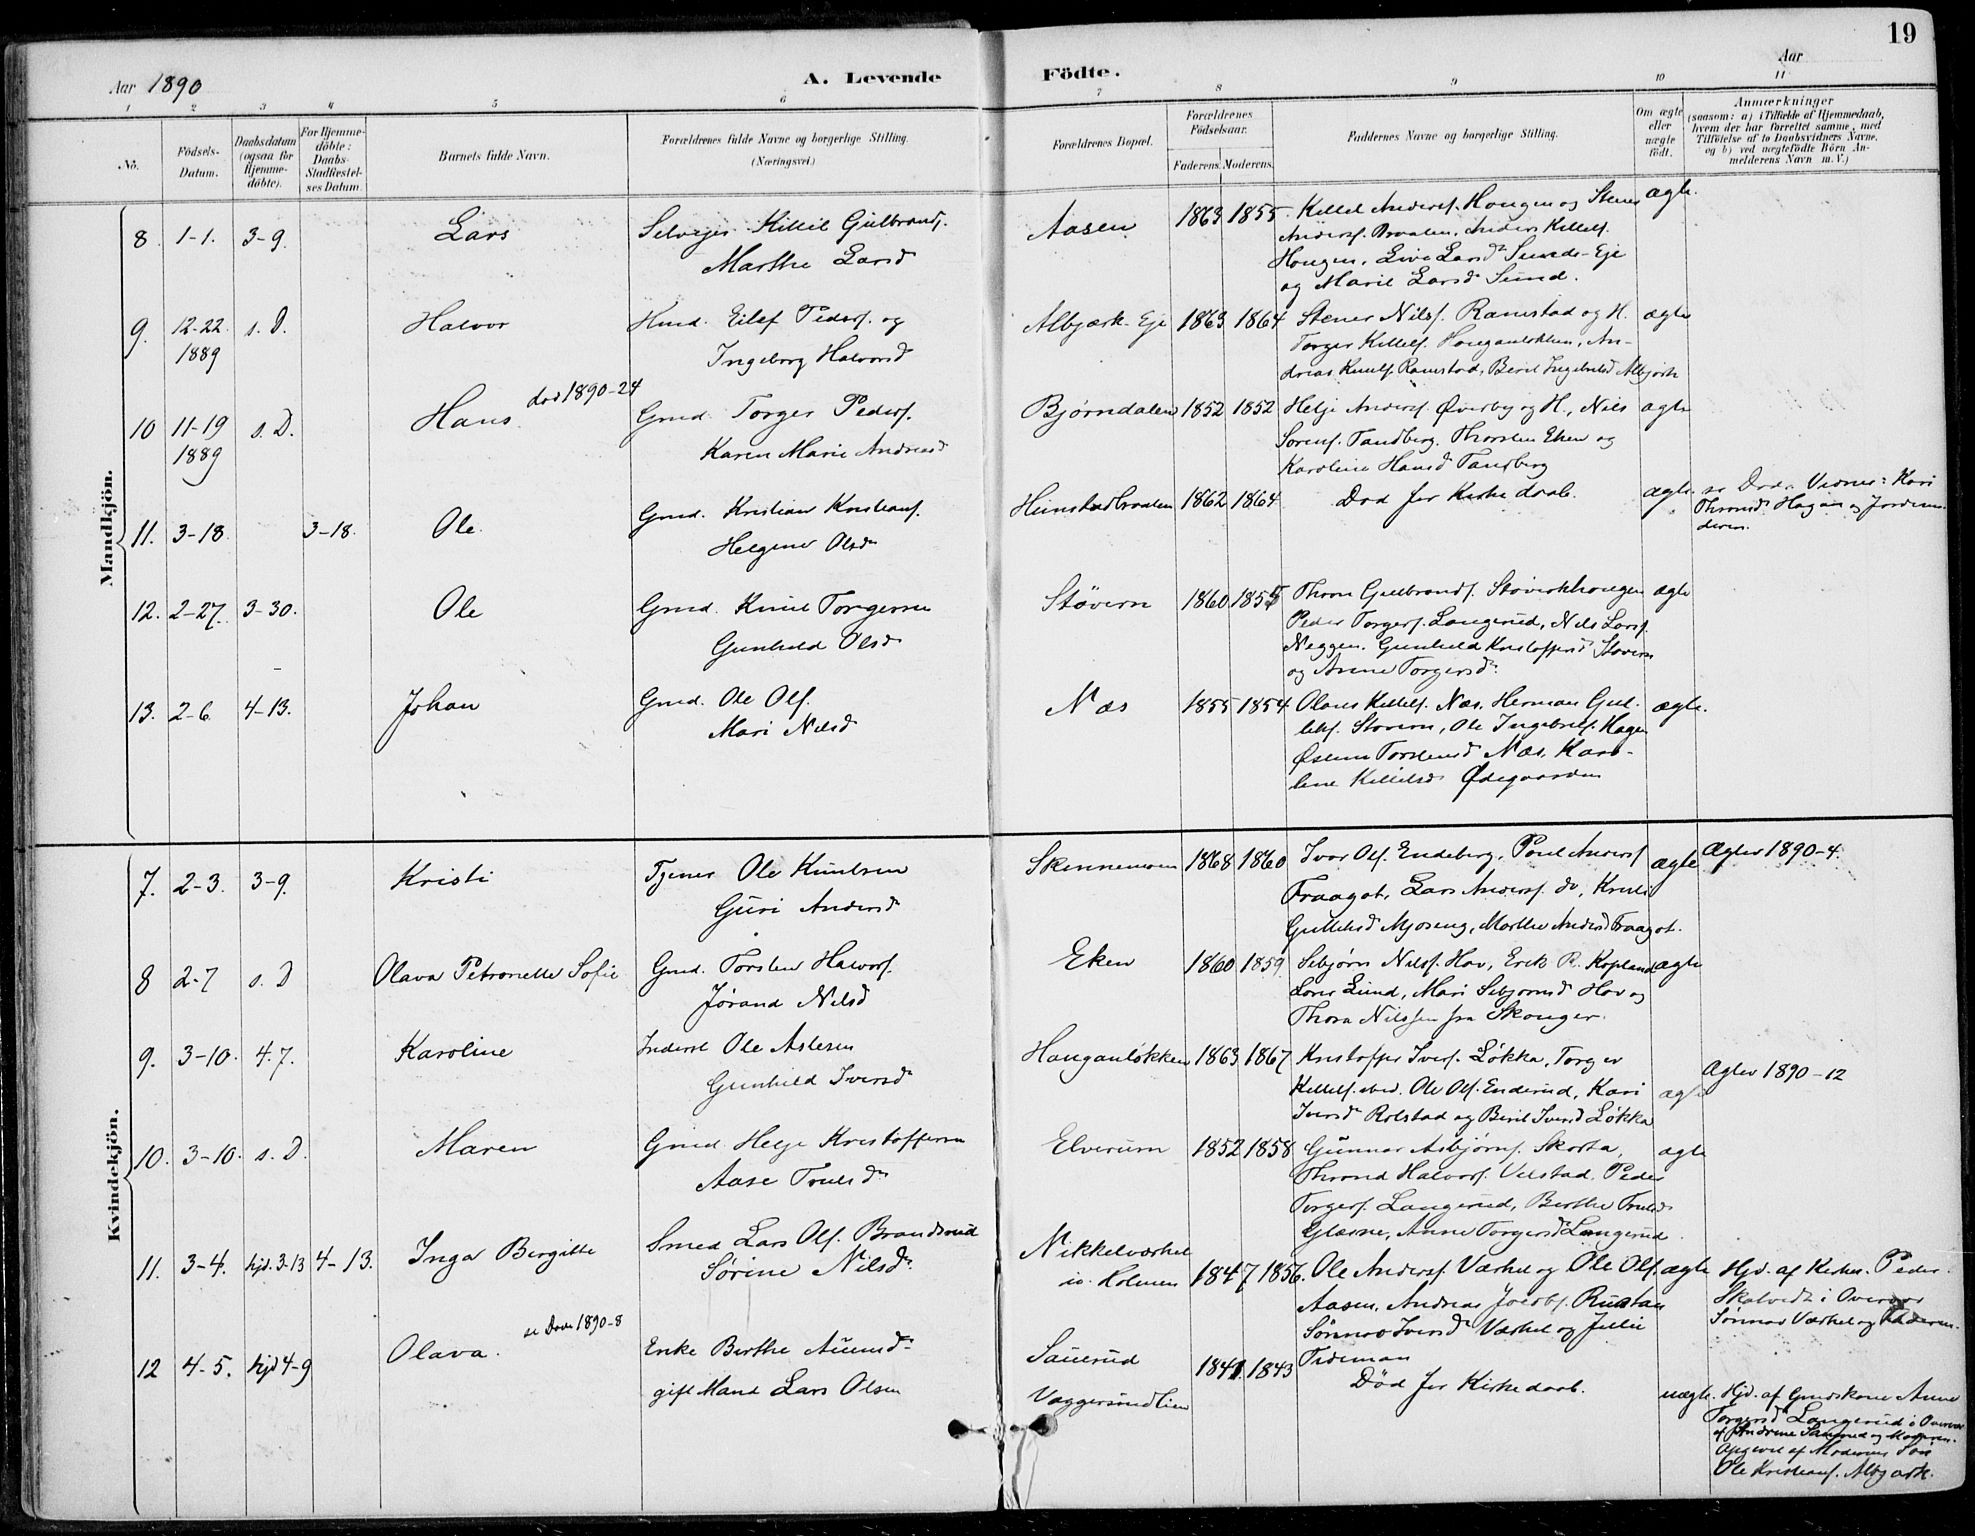 19
Aar 1890
A. Levende
Födte.
Aar
1 2 3 4 5 6 7 8 9 10 11
Nö.
Födsels-
Datum.
Daabsdatum
(ogsaa for
Hjemme-
döbte).
For Hjemme-
döbte:
Daabs-
Stadfæstel-
ses Datum.
Barnets fulde Navn.
Forældrenes fulde Navne og borgerlige Stilling.
(Næringsvei.)
Forældrenes Bopæl.
Forældrenes
Födselsaar.
Faderens. Moderens.
Faddernes Navne og borgerlige Stilling.
Om ægte
eller
uægte
födt.
Anmærkninger
(saasom: a) i Tilfælde af Hjemmedaab,
hvem der har forrettet samme, med
Tilföielse af to Daabsvidners Navne,
og b) ved uægtefödte Börn An-
melderens Navn m. V.)
Mandkjön.
8. 1-1. 3-9. Lars
Selveier Killil Gulbrands.
Marthe Larsd
Aasen 1863 1855
Killil Anders. Hougen og Stener
Anders. Braaten, Anders Killils.
Hougen, Live Larsd Sunde-Eje
og Marie Larsd Sund.
ægte.
9. 12-22 1889 s. D. Halvor
Hmd. Eilef Peders. og
Ingeborg Halvorsd
Albjærk-Eje 1863 1864
Stener Nils. Ramstad og H.
Torger Killils. Houganløkken, An-
dreas Knuts. Ramstad, Berit Ingebrtsd Albjørk
ægte
10 11-19 1889 s. D. Hans død 1890-24
Gmd. Torger Peders.
Karen Marie Andreasd
Bjørndalen 1852 1852
Helje Anders. Øverby og H., Nils
Sorens. Tandberg. Thorsten Eken og
Karoline Hansd Tandberg
ægte
11. 3-18. 3-18. Ole.
Gmd. Kristian Kristians.
Helgine Olsd
Heimstadbraaten 1862 1864
Død før Kirkedaab.
ægte.
se Døde. Vidner: Kari
Thronsd Hagan og Jordemo-
deren.
12. 2-27. 3-30. Ole
Gmd. Knut Torgersen
Gunhild Olsd
Støvern 1860 1855
Thron Gulbrands. Støvernhougen
Peder Torgers. Langerud, Nils Lars.
Neggen. Gunhild Kristoffersd Støvern
og Anne Torgersd
ægte
13. 2-6. 4-13. Johan
Gmd. Ole Ols.
Mari Nilsd
Næs 1855 1854
Olaus Killils. Næs, Herman Gul-
liks. Støvern, Ole Ingebrets. Hagen
Østine Torstensd Næs, Karo-
line Killilsd Ødegaarden
ægte.
Kvindekjön.
7. 2-3. 3-9. Kristi
Tjener Ole Knutsen
Guri Andersd
Skinnemoen 1868 1860
Ivar Ols. Endeberg, Poul Anders.
Fraagot, Lars Anders. do, Kristi
Gulliksd Mjøseng, Marthe Andersd Fraagot.
ægte
Ægtev 1890-4.
8 2-7 s. D Olava Petronelle Sofie
Gmd. Torsten Halvors.
Jørand Nilsd
Eken 1860 1859
Sebjørn Nils. Hov, Erik R. Kopland
Lovis Lund, Mari Sebjørnsd Hov og
Thora Nilssen fra Skoger.
ægte
9. 3-10. 4.7. Karoline
Inderst Ole Aslesen
Gunhild Iversd
Hauganløkken 1863 1867
Kristoffer Ivers. Løkka, Torger
Killils. ibid. Ole Ols. Enderud, Kari
Iversd Rolstad og Berit Iversd Løkka
ægte
Ægtev 1890-12
10. 3-10. s. D. Maren
Gmd. Helje Kristoffersen
Aase Trulsd
Elverum 1852 1858
Gunnar Asbjørns. Skarta,
Thrond Halvors. Velstad, Peder
Torgers. Langerud, Berthe Trulsd
Glærne, Anne Torgersd Langerud.
ægte
11. 3-4. hjd. 3-13 4-13. Inga Birgitte
Smed Lars Ols. Brandsrud
Sørine Nilsd
Nikkelverket
iv. Holmen 1847 1856.
Ole Anders. Værket og Ole Ols.
Aasen, Andreas Jacobs. Rustan
Sønnov Iversd Værket og Julie
Tideman
ægte
Hjd. af Kirkes. Peder
Skalvedt i Overvær
Sønnov Værket og Faderen.
12 4-5. hjd 4-9 Olava. se Døde 1890-8
Enke Berthe Amundsd
gift Mand Lars Olsen
Sauerud
Vaggersundlien 1841. 1843
Død før Kirkedaab.
uægte.
Hjd. af Gmdskone Anne
Torgersd Langerud i Overvær
af Andrine Sauerud og Moderen.
Opgivet af Moderens Søn
Ole Kristians. Albjærk.